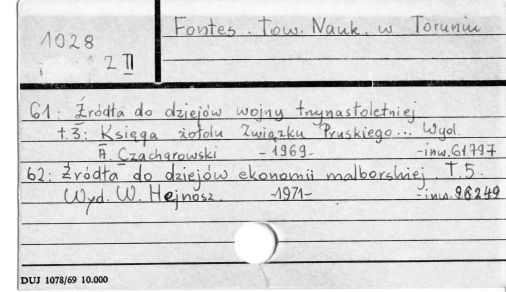 1028
2 II
Fontes. Tow. Nauk. w Toruniu
61: Źródła do dziejów wojny trzynastoletniej
t.3: Księga żołdu Związku Pruskiego... Wyd.
A Czacharowski -1969- -inw.61797
62: Źródła do dziejów ekonomii malborskiej. T.5.
Wyd. W. Hejnosz. -1971- -inw.96249
DUJ 1078/69 10.000